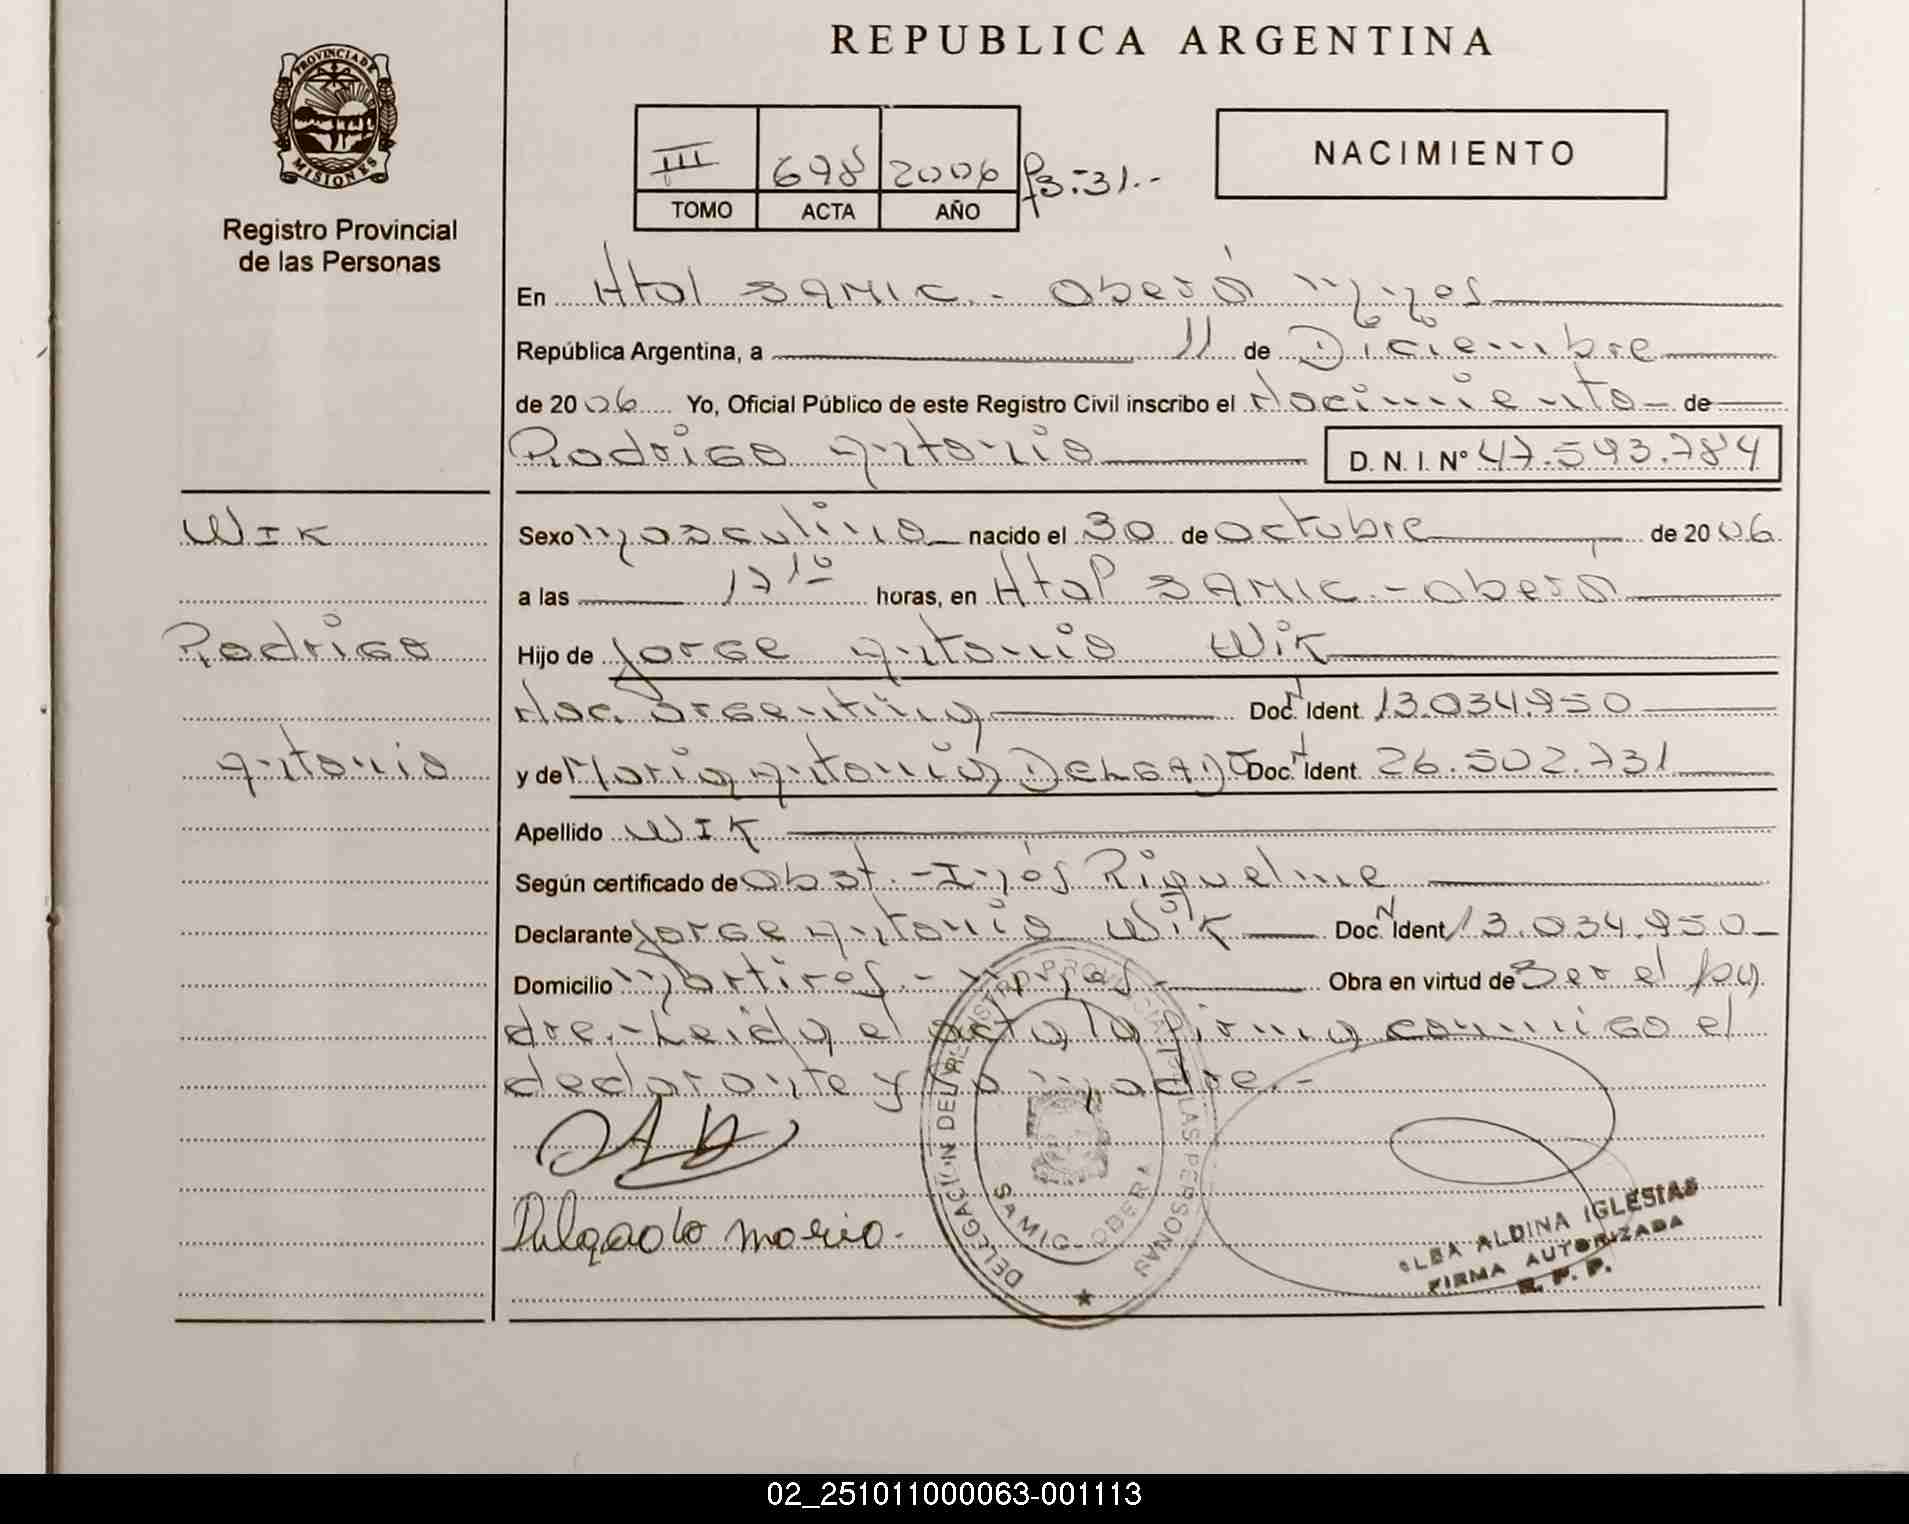 REPUBLICA ARGENTINA
PROVINCIA DE
MISIONES
Registro Provincial
de las Personas
III 698 2006 Fs:31.-
TOMO ACTA AÑO
NACIMIENTO
En Htal SAMIC.- Oberá Mnes
República Argentina, a 11 de Diciembre
de 2006 Yo, Oficial Público de este Registro Civil inscribo el Nacimiento de
Rodrigo Antonio D. N. I. N° 47.593.784
WIK
Rodrigo
Antonio
Sexo Masculino nacido el 30 de Octubre de 2006
a las 17 10 horas, en Htal SAMIC.- Oberá
Hijo de Jorge Antonio Wik
Nac. Argentina Doc. N Ident. 13.034.950
y de Maria Antonia DELGADO Doc. N Ident. 26.502.731
Apellido WIK
Según certificado de Obst.- Inés Riquelme
Declarante Jorge Antonio Wik Doc. N Ident 13.034.950
Domicilio Martires.- Mnes.- Obra en virtud de Ser el pa
dre.- Leida el acta la firma conmigo el
declarante y la madre.-
Delgado maria.
DELEGACIÓN DEL REGISTRO PROVINCIAL DE LAS PERSONAS
SAMIC - OBERA
ELBA ALDINA IGLESIAS
FIRMA AUTORIZADA
R. P. P.
02_251011000063-001113